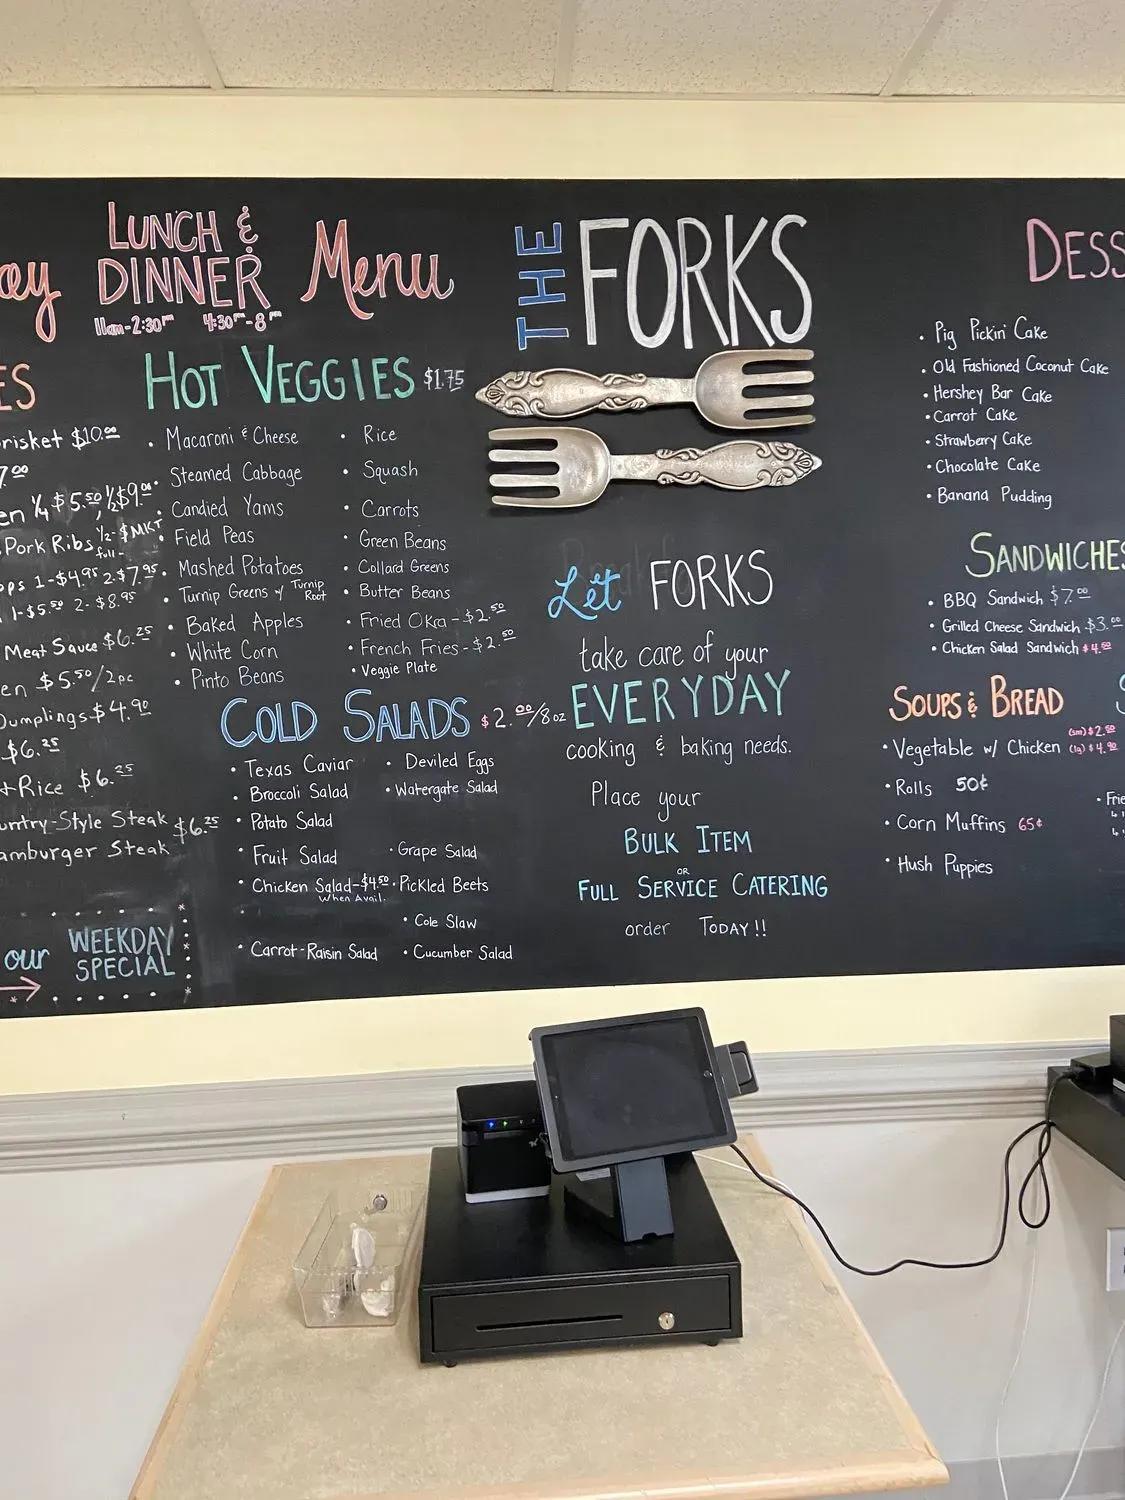 LUNCH &
DINNER
Menu
11am-2:30pm 4:30pm-8pm
$10.00
7.00
1/4 $5.50, 1/2 $9.00
Pork Ribs 1/2-$MKT
full-
1-$4.95 2-$7.95
1-$5.50 2-$8.95
Meat Sauce $6.25
$5.50/2pc
Dumplings $4.90
$6.25
Rice $6.25
Country-Style Steak $6.25
Hamburger Steak
our WEEKDAY
SPECIAL
HOT VEGGIES $1.75
• Macaroni & Cheese
• Steamed Cabbage
• Candied Yams
• Field Peas
• Mashed Potatoes
• Turnip Greens w/ Turnip Root
• Baked Apples
• White Corn
• Pinto Beans
• Rice
• Squash
• Carrots
• Green Beans
• Collard Greens
• Butter Beans
• Fried Okra - $2.50
• French Fries - $2.50
• Veggie Plate
COLD SALADS $2.00/8oz
• Texas Caviar
• Broccoli Salad
• Potato Salad
• Fruit Salad
• Chicken Salad-$4.50
When Avail.
• Carrot-Raisin Salad
• Deviled Eggs
• Watergate Salad
• Grape Salad
• Pickled Beets
• Cole Slaw
• Cucumber Salad
THE FORKS
Let FORKS
take care of your
EVERYDAY
cooking & baking needs.
Place your
BULK ITEM
OR
FULL SERVICE CATERING
order TODAY!!
DESS
• Pig Pickin' Cake
• Old Fashioned Coconut Cake
• Hershey Bar Cake
• Carrot Cake
• Strawberry Cake
• Chocolate Cake
• Banana Pudding
SANDWICHES
• BBQ Sandwich $7.00
• Grilled Cheese Sandwich $3.00
• Chicken Salad Sandwich $4.50
SOUPS & BREAD
• Vegetable w/ Chicken (sm) $2.50
(lg) $4.90
• Rolls 50¢
• Corn Muffins 65¢
• Hush Puppies